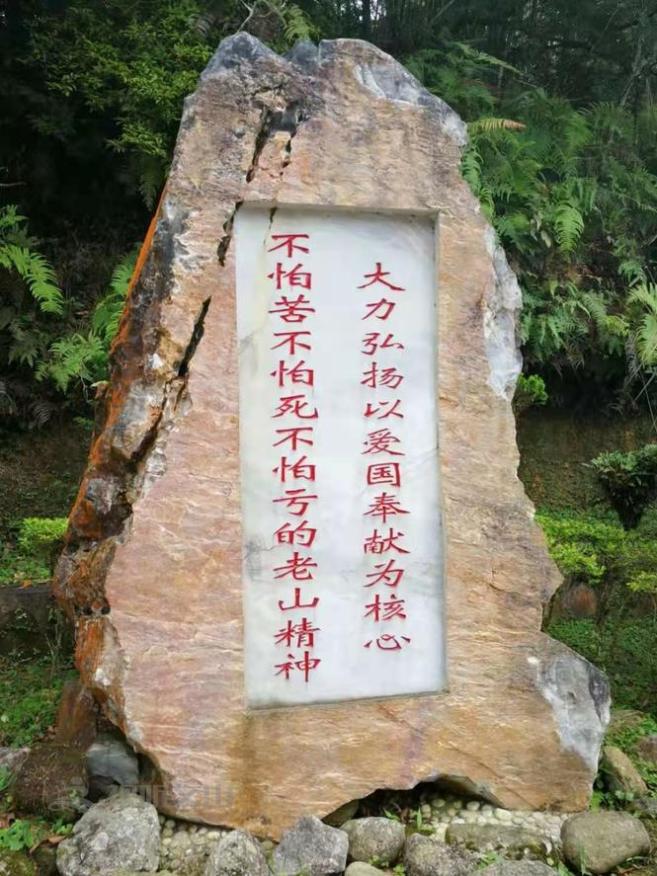 大力弘扬以爱国奉献为核心
不怕苦不怕死不怕亏的老山精神